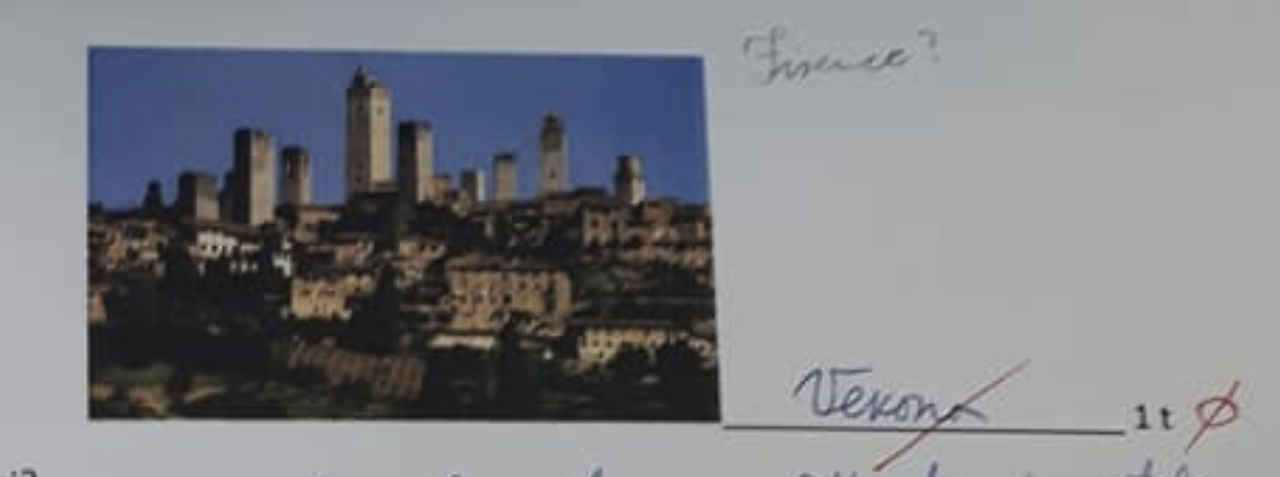 Firence?
Verona
1 t Ø